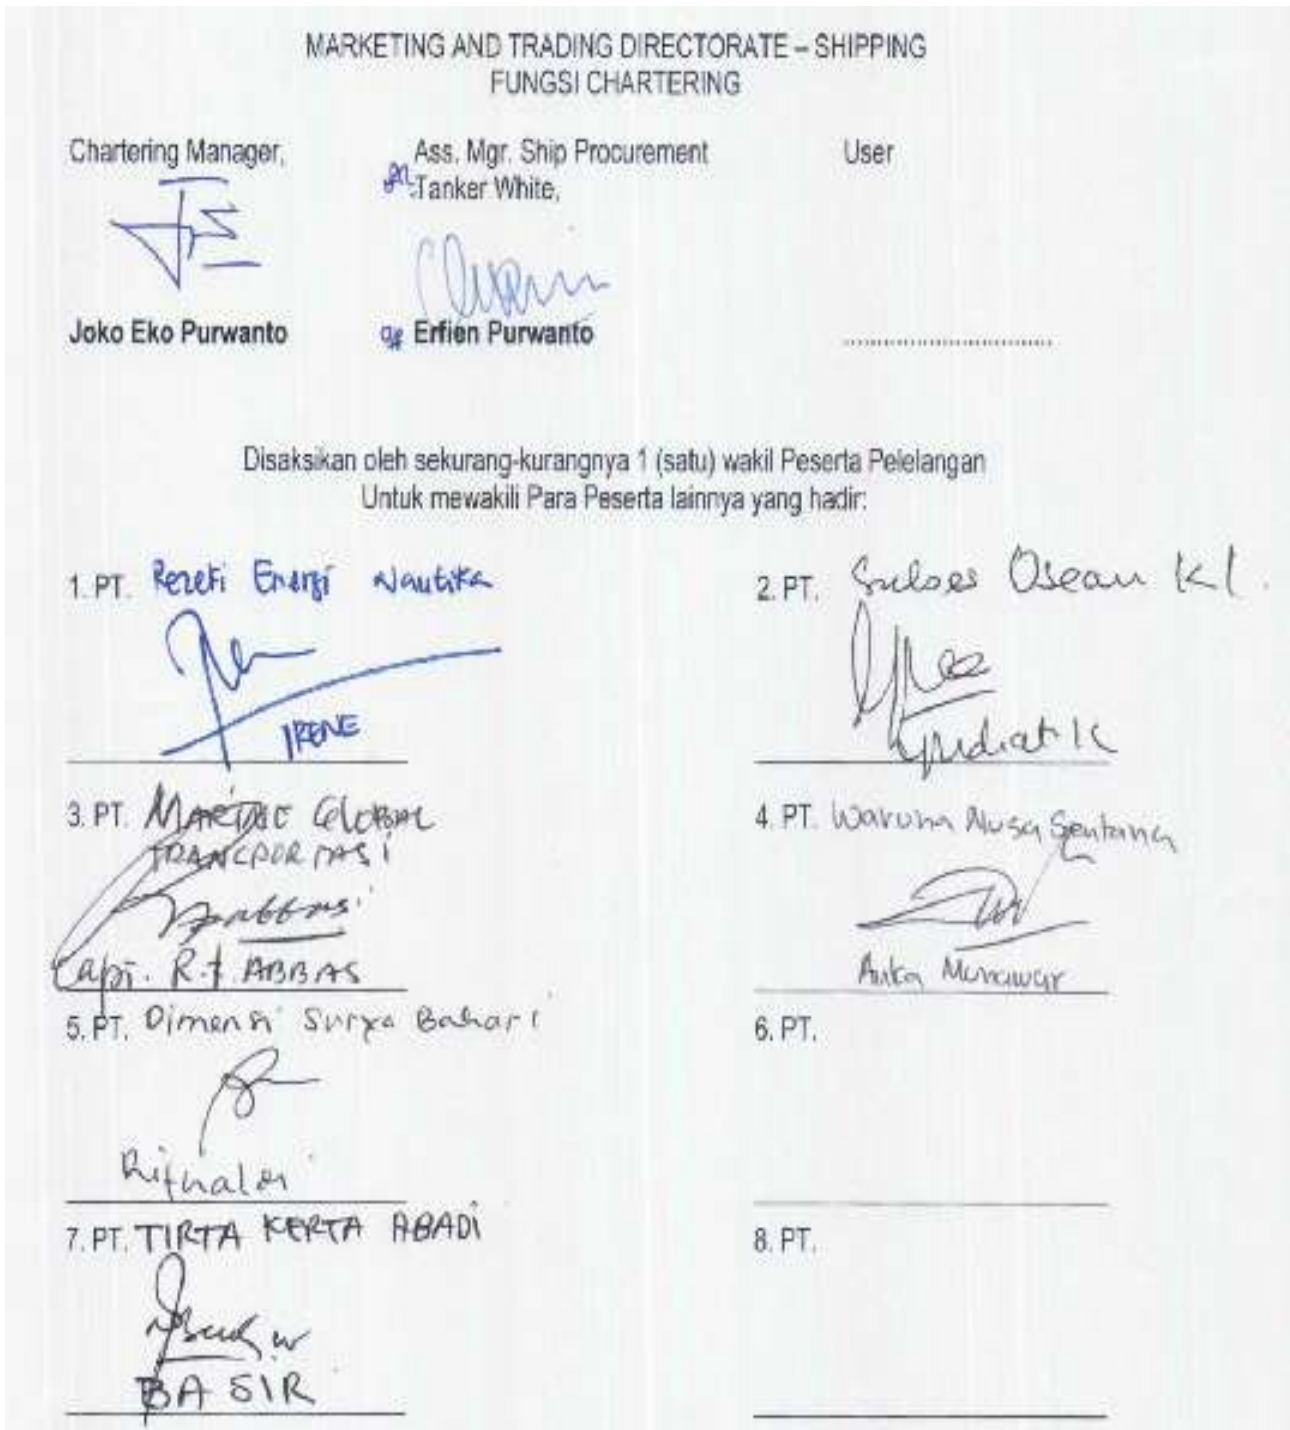 MARKETING AND TRADING DIRECTORATE – SHIPPING
FUNGSI CHARTERING
Chartering Manager,
Ass. Mgr. Ship Procurement
Tanker White,
User
Joko Eko Purwanto
Erfien Purwanto
..............................
Disaksikan oleh sekurang-kurangnya 1 (satu) wakil Peserta Pelelangan
Untuk mewakili Para Peserta lainnya yang hadir:
1. PT. Rezeki Energi Nautika
IRENE
2. PT. Sukses Osean Kl.
3. PT. MARITIME GLOBAL
TRANSPORTASI
Capt. R.f. ABBAS
4. PT. Waruna Nusa Sentana
Anka Munawar
5. PT. Dimensi Surya Bahari
Rifnaldi
6. PT.
7. PT. TIRTA KERTA ABADI
BASIR
8. PT.